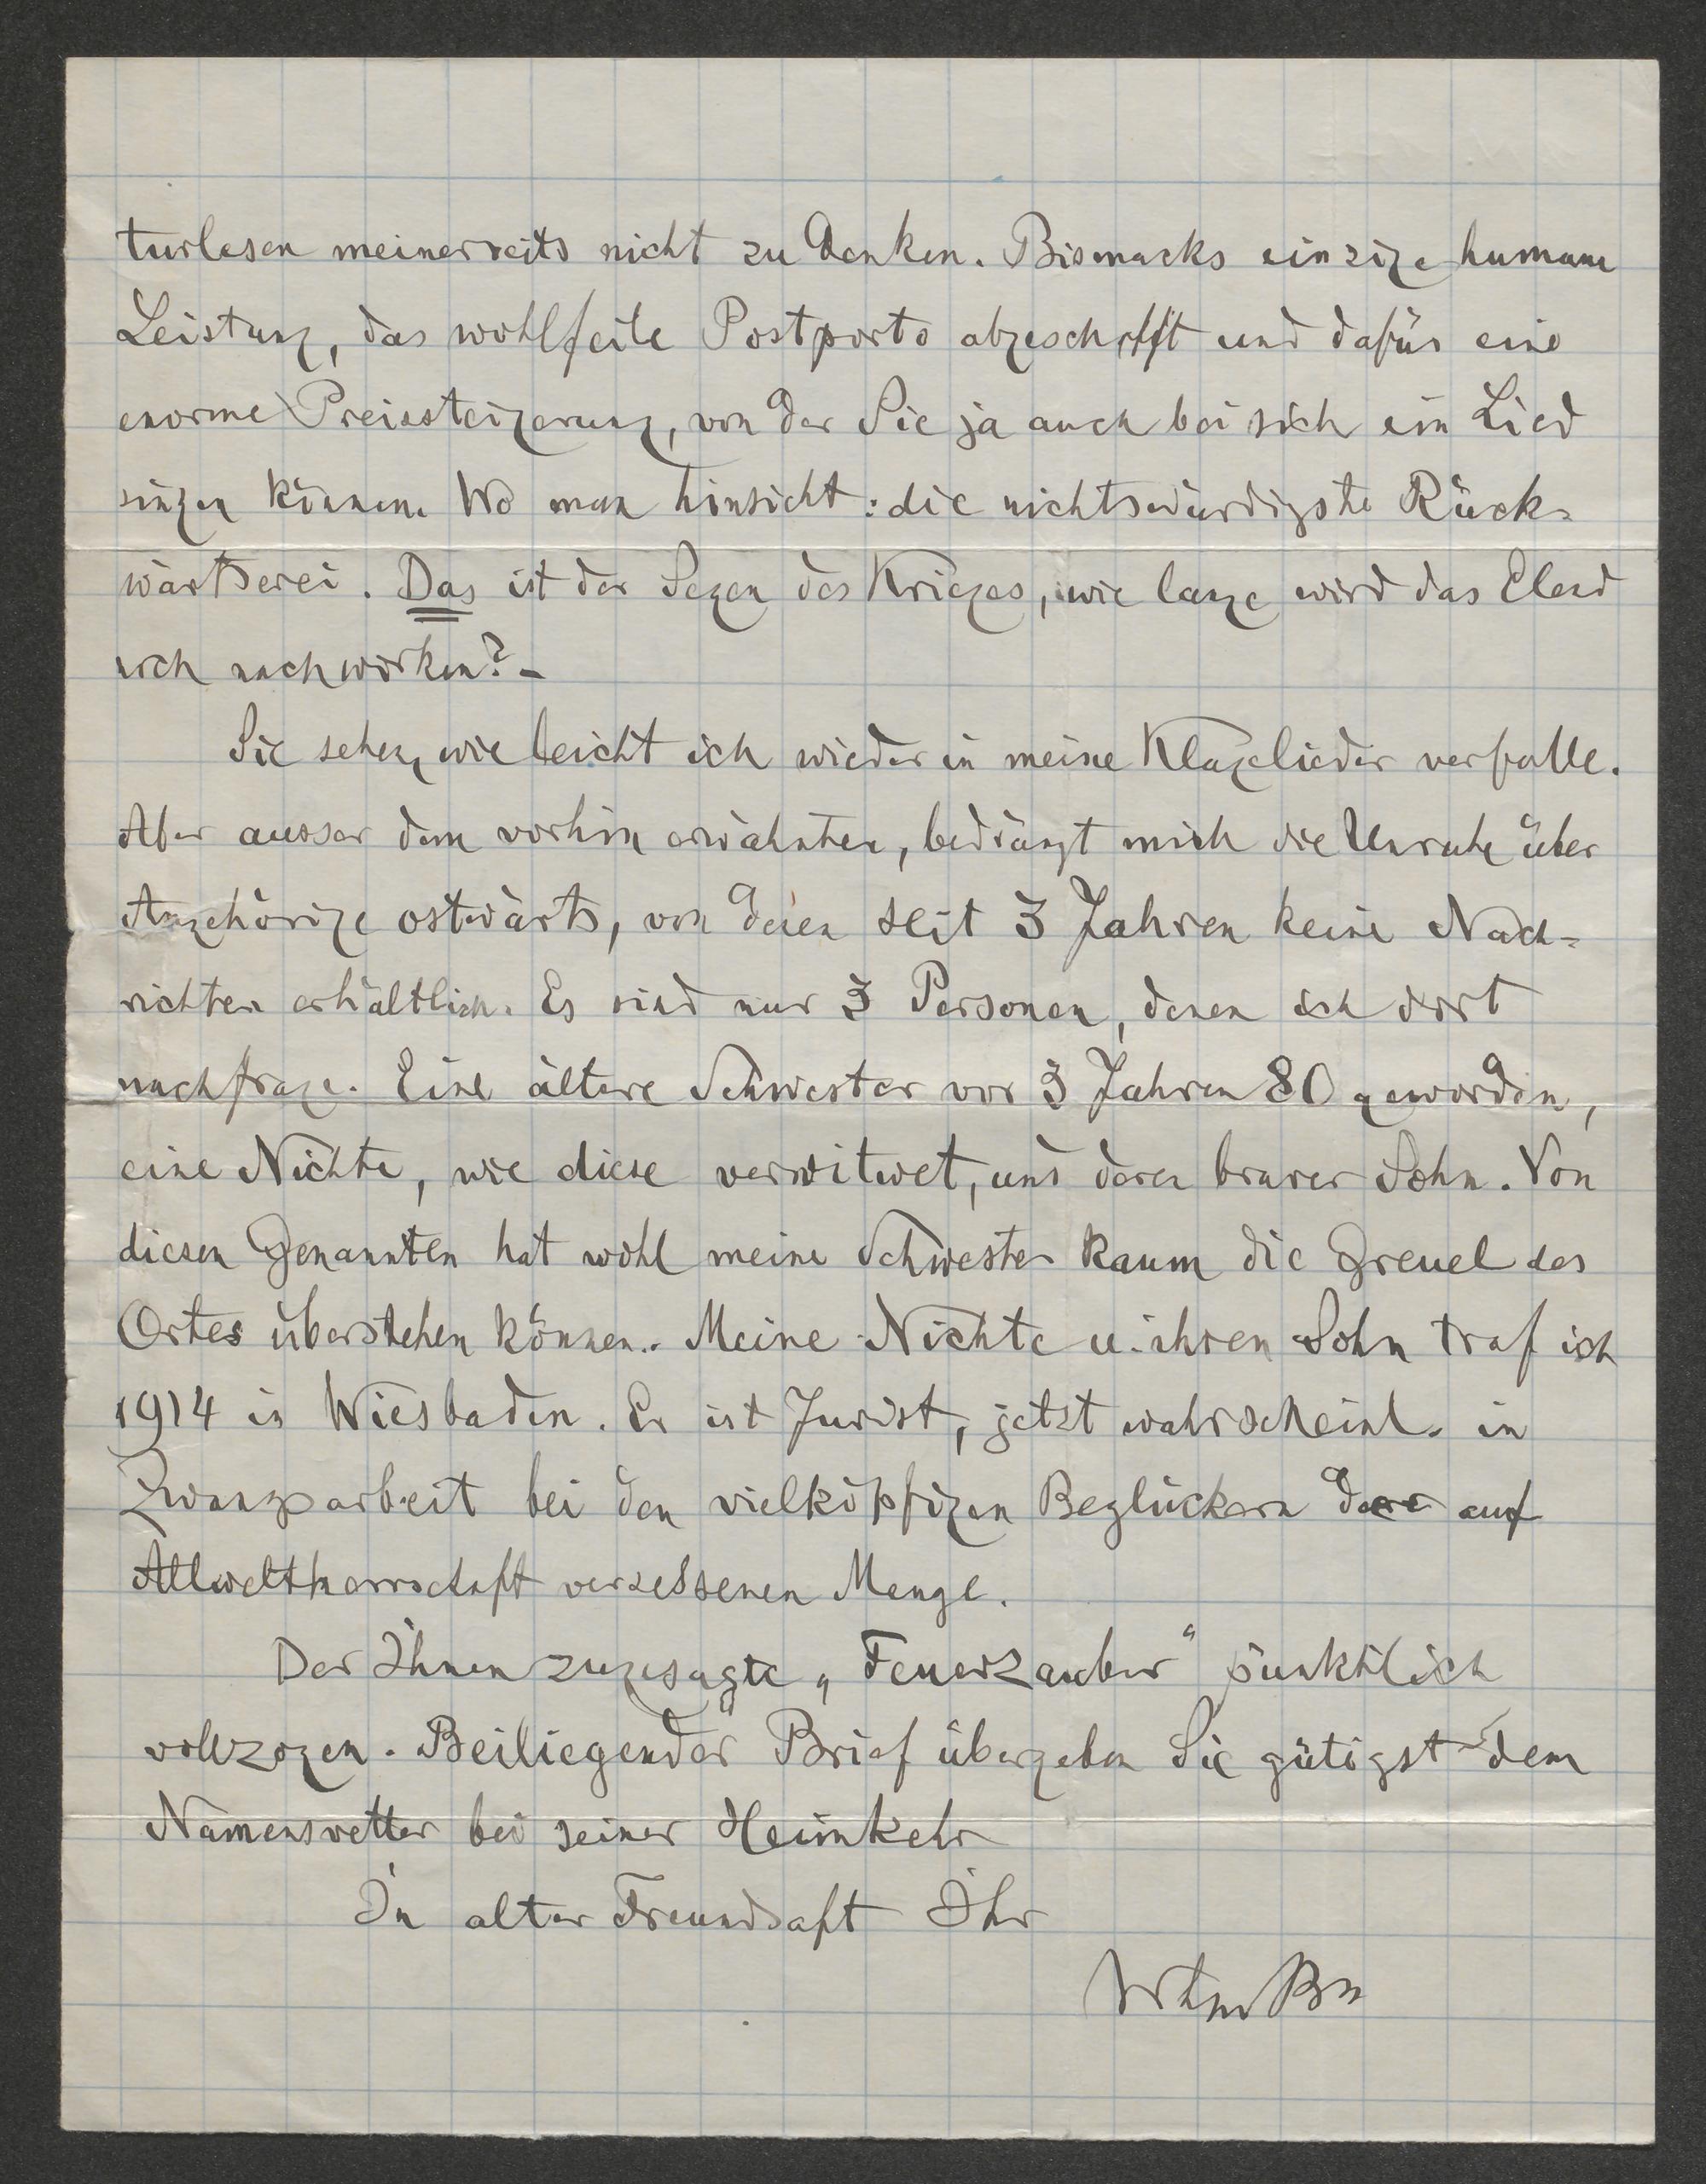 turlesen meinerseits nicht zu denken. Bismarcks einzige humane
Leistung, das wohlfeile Postporto abgeschafft und dafür eine
enorme Preissteigerung, von der Sie ja auch bei sich ein Lied
singen können. Wo man hinsieht: die nichtswürdigste Rück-
wärtserei. Das ist der Segen des Krieges, wie lange wird das Elend
noch nachwirken? -
Sie sehen, wie leicht ich wieder in meine Klagelieder verfalle.
Aber ausser dem vorhin erwähnten, bedrängt mich die Unruhe über
Angehörige ostwärts, von denen seit 3 Jahren keine Nach-
richten erhältlich. Es sind nur 3 Personen, denen ich dort
nachfrage. Eine ältere Schwester vor 3 Jahren 80 geworden,
eine Nichte, wie diese verwitwet, und deren braver Sohn. Von
diesen Genannten hat wohl meine Schwester kaum die Greuel des
Ortes überstehen können. Meine Nichte u. ihren Sohn traf ich
1914 in Wiesbaden. Er ist Jurist, jetzt wahrscheinl. in
Zwangsarbeit bei den vielköpfigen Beglückern der auf
Allweltherrschaft versessenen Menge.
Der Ihnen zugesagte „Feuerzauber“ pünktlich
vollzogen. Beiliegender Brief übergeben Sie gütigst dem
Namensvetter bei seiner Heimkehr
In alter Freundsaft Ihr